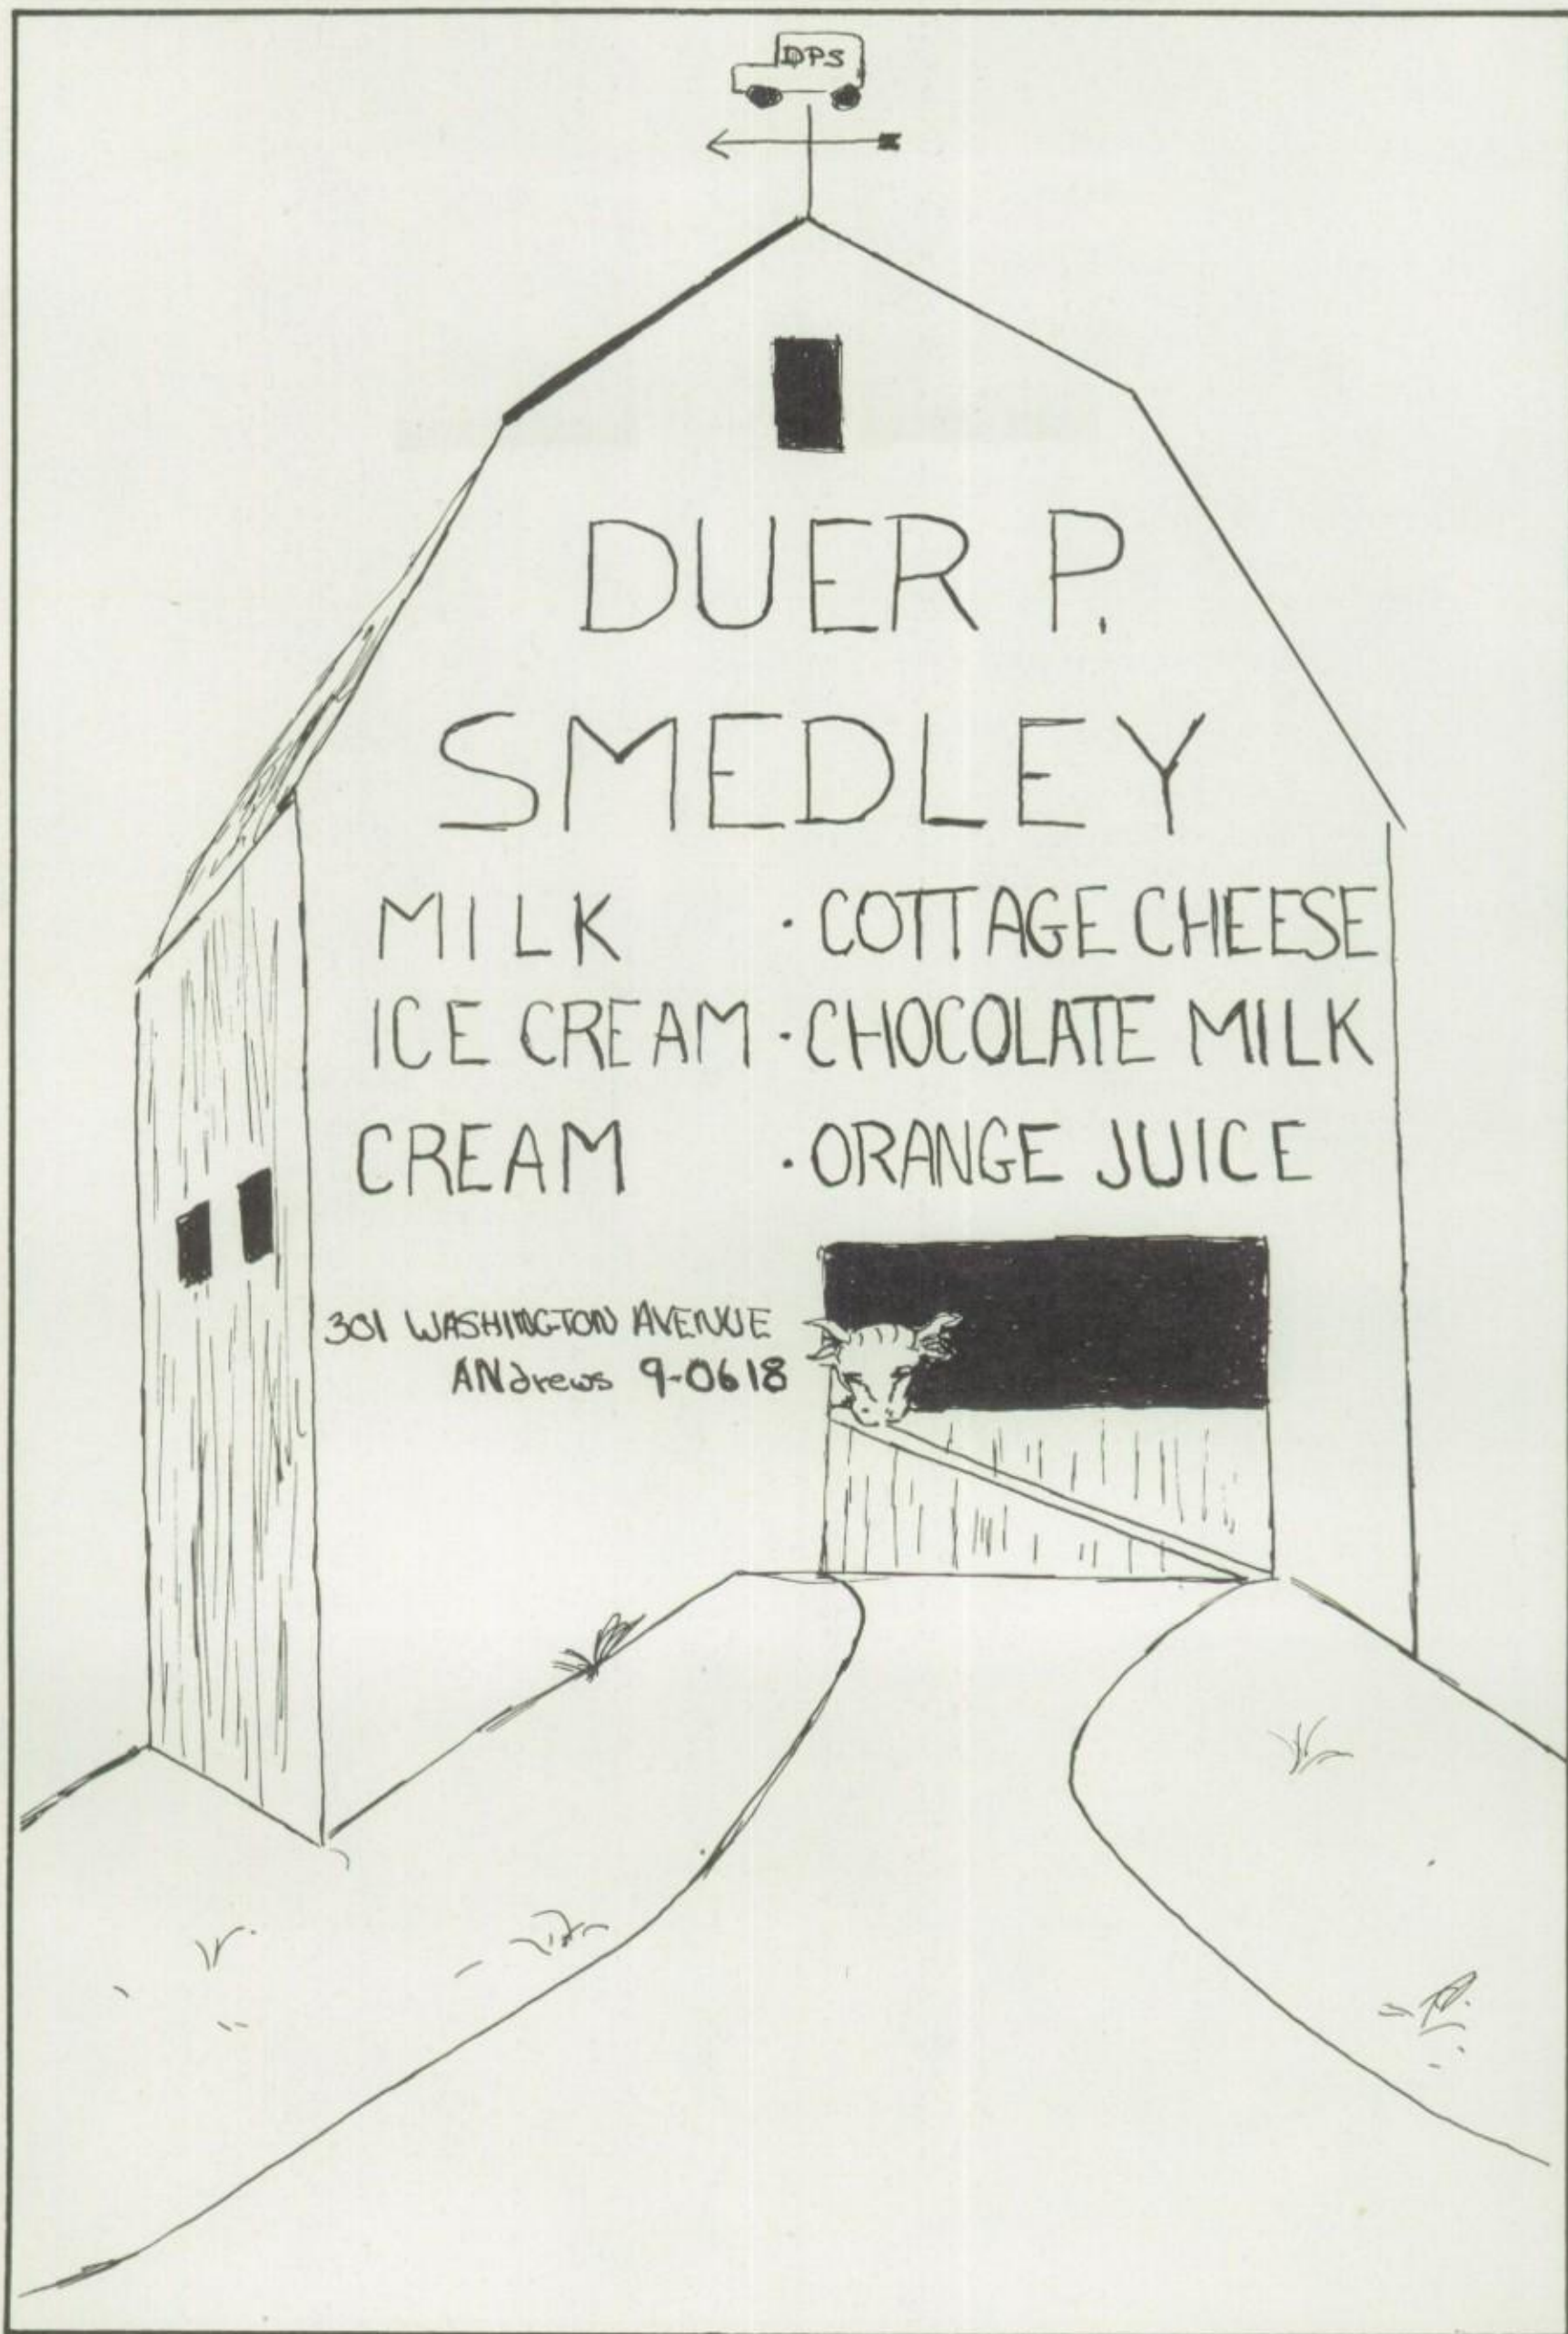 DPS
DUER P.
SMEDLEY
MILK · COTTAGE CHEESE
ICE CREAM · CHOCOLATE MILK
CREAM · ORANGE JUICE
301 WASHINGTON AVENUE
ANdrews 9-0618